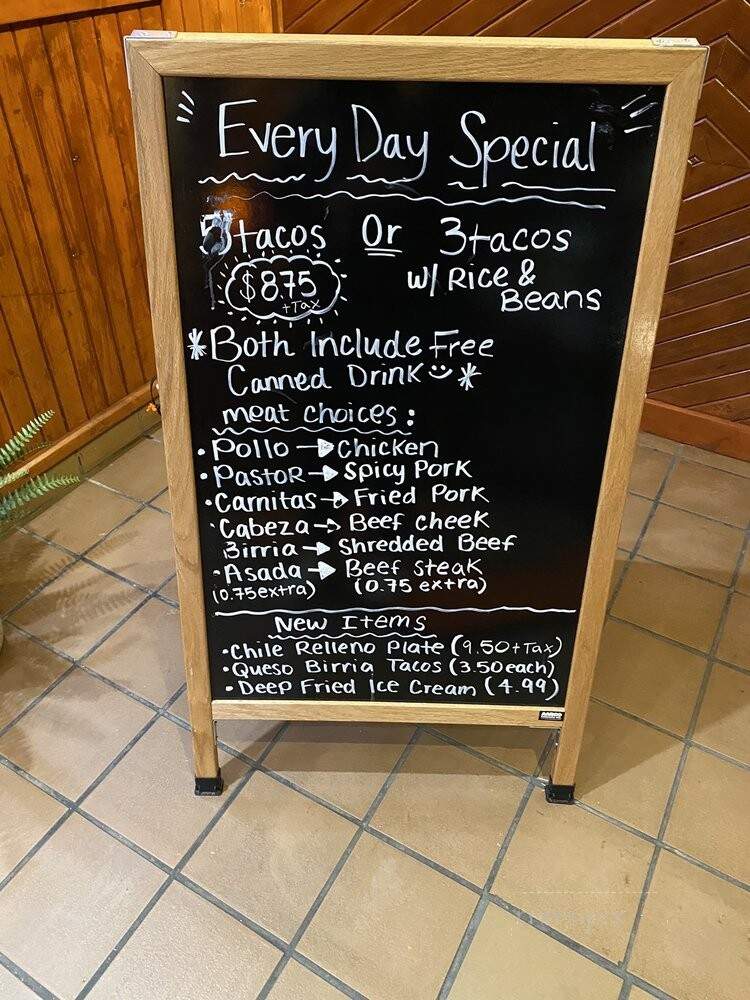 Every Day Special
5tacos Or 3tacos
$8.75 w/ Rice &
+Tax Beans
*Both Include Free
Canned Drink *
meat choices:
• Pollo → Chicken
• Pastor → Spicy Pork
• Carnitas → Fried Pork
• Cabeza → Beef cheek
Birria → Shredded Beef
• Asada → Beef Steak
(0.75 extra) (0.75 extra)
New Items
• Chile Relleno Plate (9.50+Tax)
• Queso Birria Tacos (3.50 each)
• Deep Fried Ice Cream (4.99)